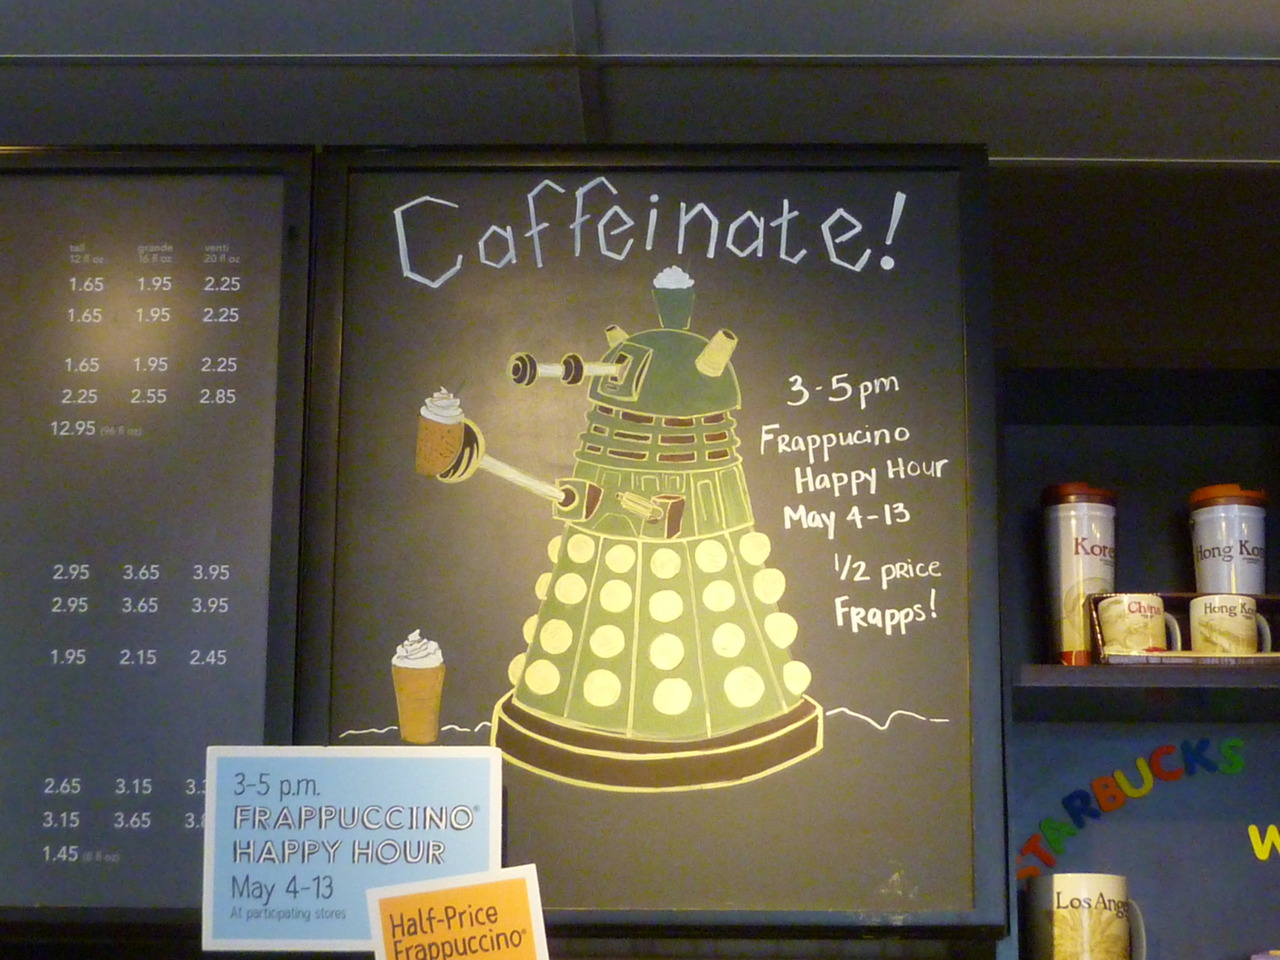 Caffeinate!
3-5pm
Frappucino
Happy Hour
May 4-13
1/2 price
Frapps!
tall grande venti
12 fl oz 16 fl oz 20 fl oz
1.65 1.95 2.25
1.65 1.95 2.25
1.65 1.95 2.25
2.25 2.55 2.85
12.95 (96 fl oz)
2.95 3.65 3.95
2.95 3.65 3.95
1.95 2.15 2.45
2.65 3.15
3.15 3.65
1.45 (8 fl oz)
3-5 p.m.
FRAPPUCCINO®
HAPPY HOUR
May 4-13
At participating stores
Half-Price
Frappuccino®
Kore
Hong Kon
China
Hong Ko
STARBUCKS
W
Los Ange